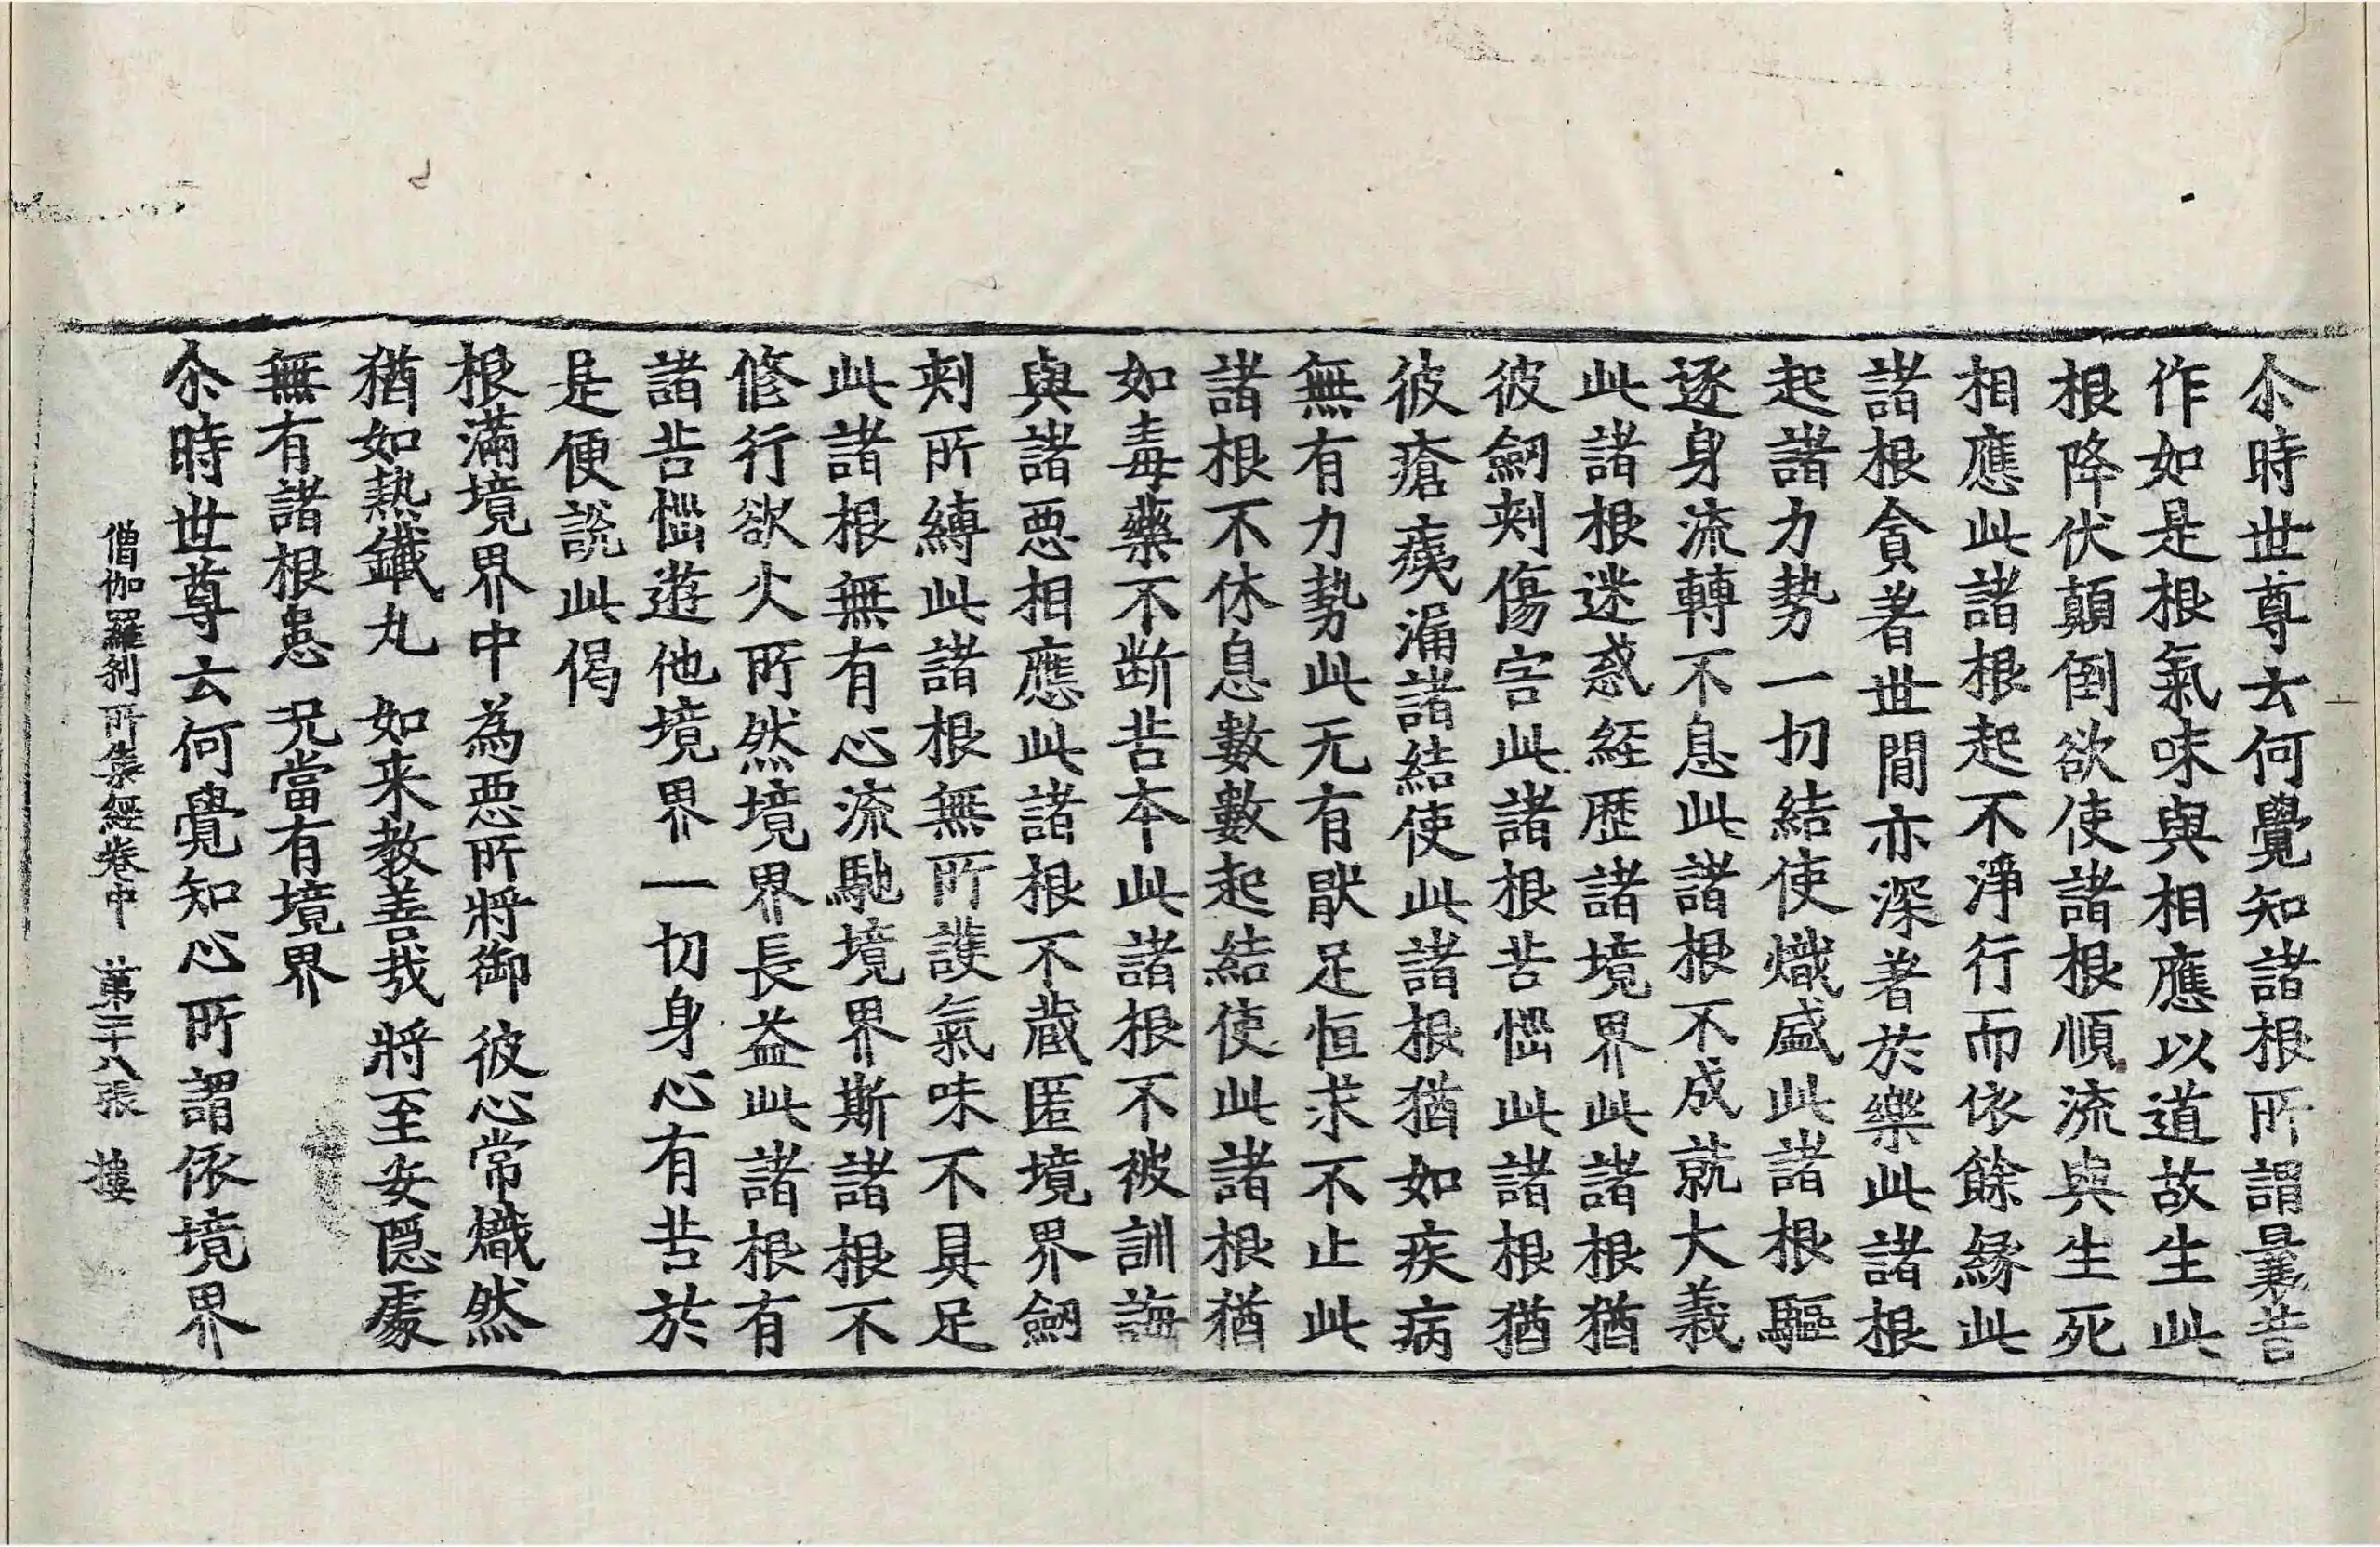 尒時世尊云何覺知諸根所謂曩昔
作如是根氣味與相應以道故生此
根降伏顛倒欲使諸根順流與生死
相應此諸根起不淨行而依餘緣此
諸根貪著世間亦深著於樂此諸根
起諸力勢一切結使熾盛此諸根驅
逐身流轉不息此諸根不成就大義
此諸根迷惑經歷諸境界此諸根猶
彼劒刾傷害此諸根苦惱此諸根猶
彼瘡痍漏諸結使此諸根猶如疾病
無有力勢此无有猒足恒求不止此
諸根不休息數數起結使此諸根猶
如毒藥不斷苦本此諸根不被訓誨
與諸惡相應此諸根不藏匿境界劒
刾所縛此諸根無所護氣味不具足
此諸根無有心流馳境界斯諸根不
修行欲火所然境界長益此諸根有
諸苦惱遊他境界一切身心有苦於
是便說此偈
根滿境界中　為惡所將御　彼心常熾然
猶如熱鐵丸　如来教善哉　將至安隱處
無有諸根患　況當有境界
尒時世尊云何覺知心所謂依境界
僧伽羅刹所集經卷中　第二十八張　樓